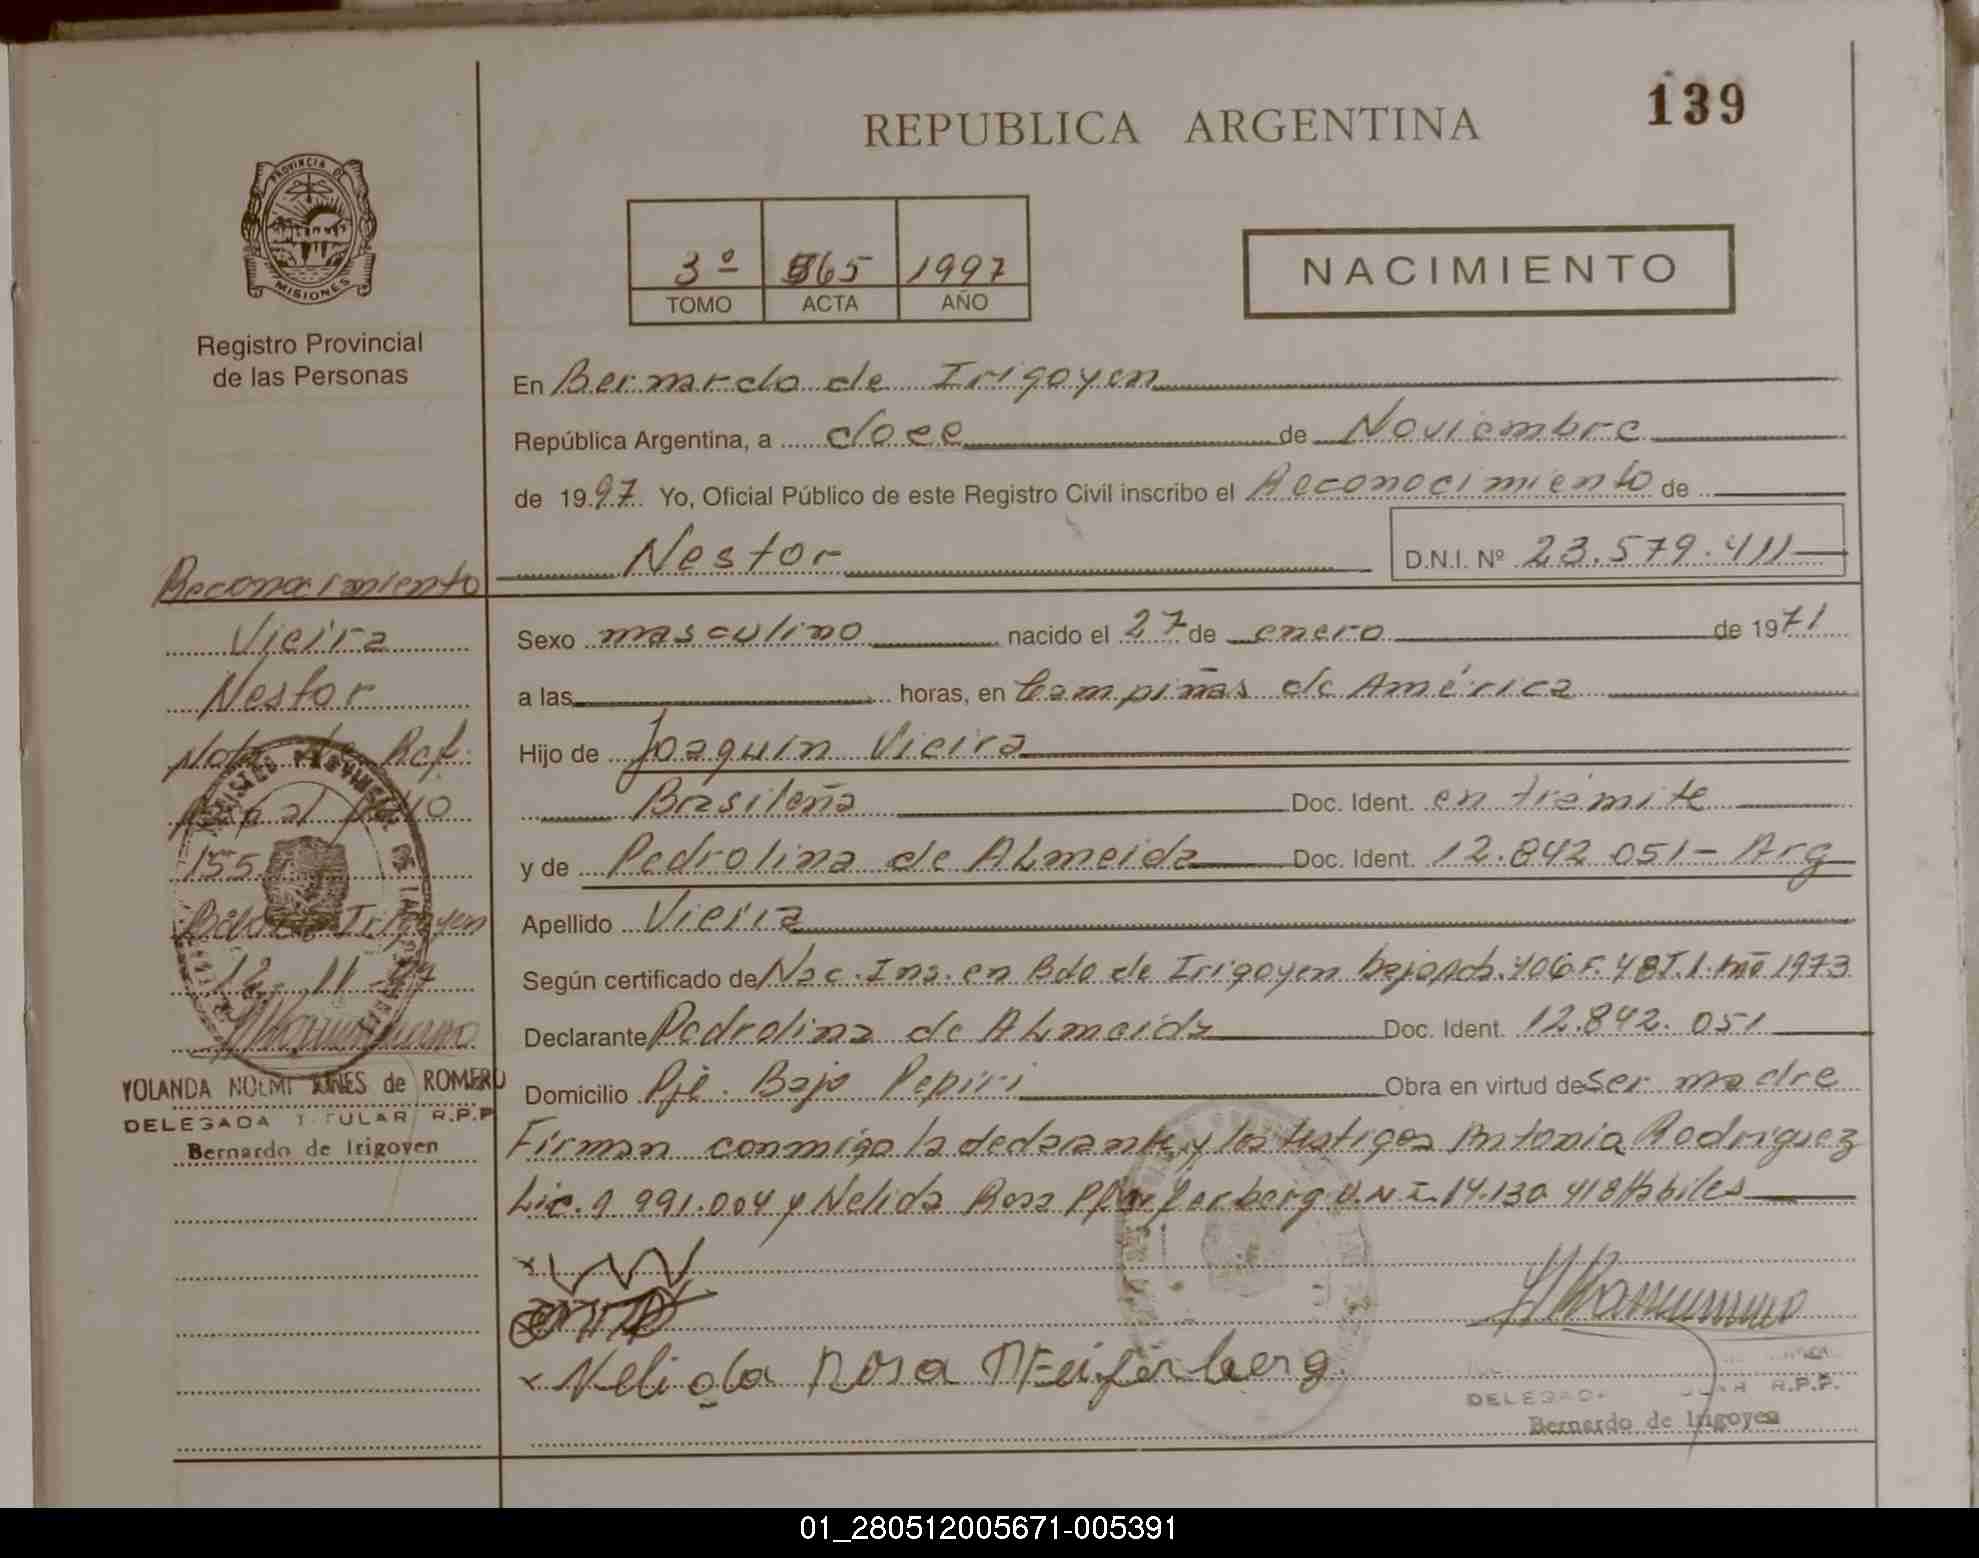 139
REPUBLICA ARGENTINA
PROVINCIA DE
MISIONES
Registro Provincial
de las Personas
3º 565 1997
TOMO ACTA AÑO
NACIMIENTO
En Bernardo de Irigoyen
República Argentina, a doce de Noviembre
de 1997. Yo, Oficial Público de este Registro Civil inscribo el Reconocimiento de
Nestor D.N.I. Nº 23.579.411
Sexo masculino nacido el 27 de enero de 1971
a las horas, en Campiñas de América
Hijo de Joaquin Vieira
Brasileña Doc. Ident. en trámite
y de Pedrolina de ALmeida Doc. Ident. 12.842 051- Arg
Apellido Vieira
Según certificado de Nac. Ins. en Bdo de Irigoyen bajo 406 F. 48 T.1. 1973
Declarante Pedrolina de ALmeida Doc. Ident. 12.842. 051
Domicilio Pje. Bajo Pepiri Obra en virtud de Ser madre
Firman conmigo la declarante y los testigos Antonia Rodriguez
Lic. 9 991.004 y Nelida Rosa D.N.I. 14.130 418 Habiles
x
x Nelida Rosa
DELEGADA R.P.P.
Bernardo de Irigoyen
Reconocimiento
Vieira
Nestor
Nota de Ref.
155
Bdo de Irigoyen
12-11-97
YOLANDA NOEMI de ROMERO
DELEGADA TITULAR R.P.P
Bernardo de Irigoyen
01_280512005671-005391